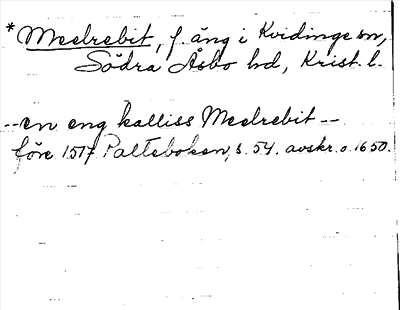 * Meelrebit, f. äng i Kvidinge sn,
Södra Åsbo hd, Krist. l.
--en eng kalliss Meelrebit--
före 1517 Palteboken, s. 54. avskr. o. 1650.